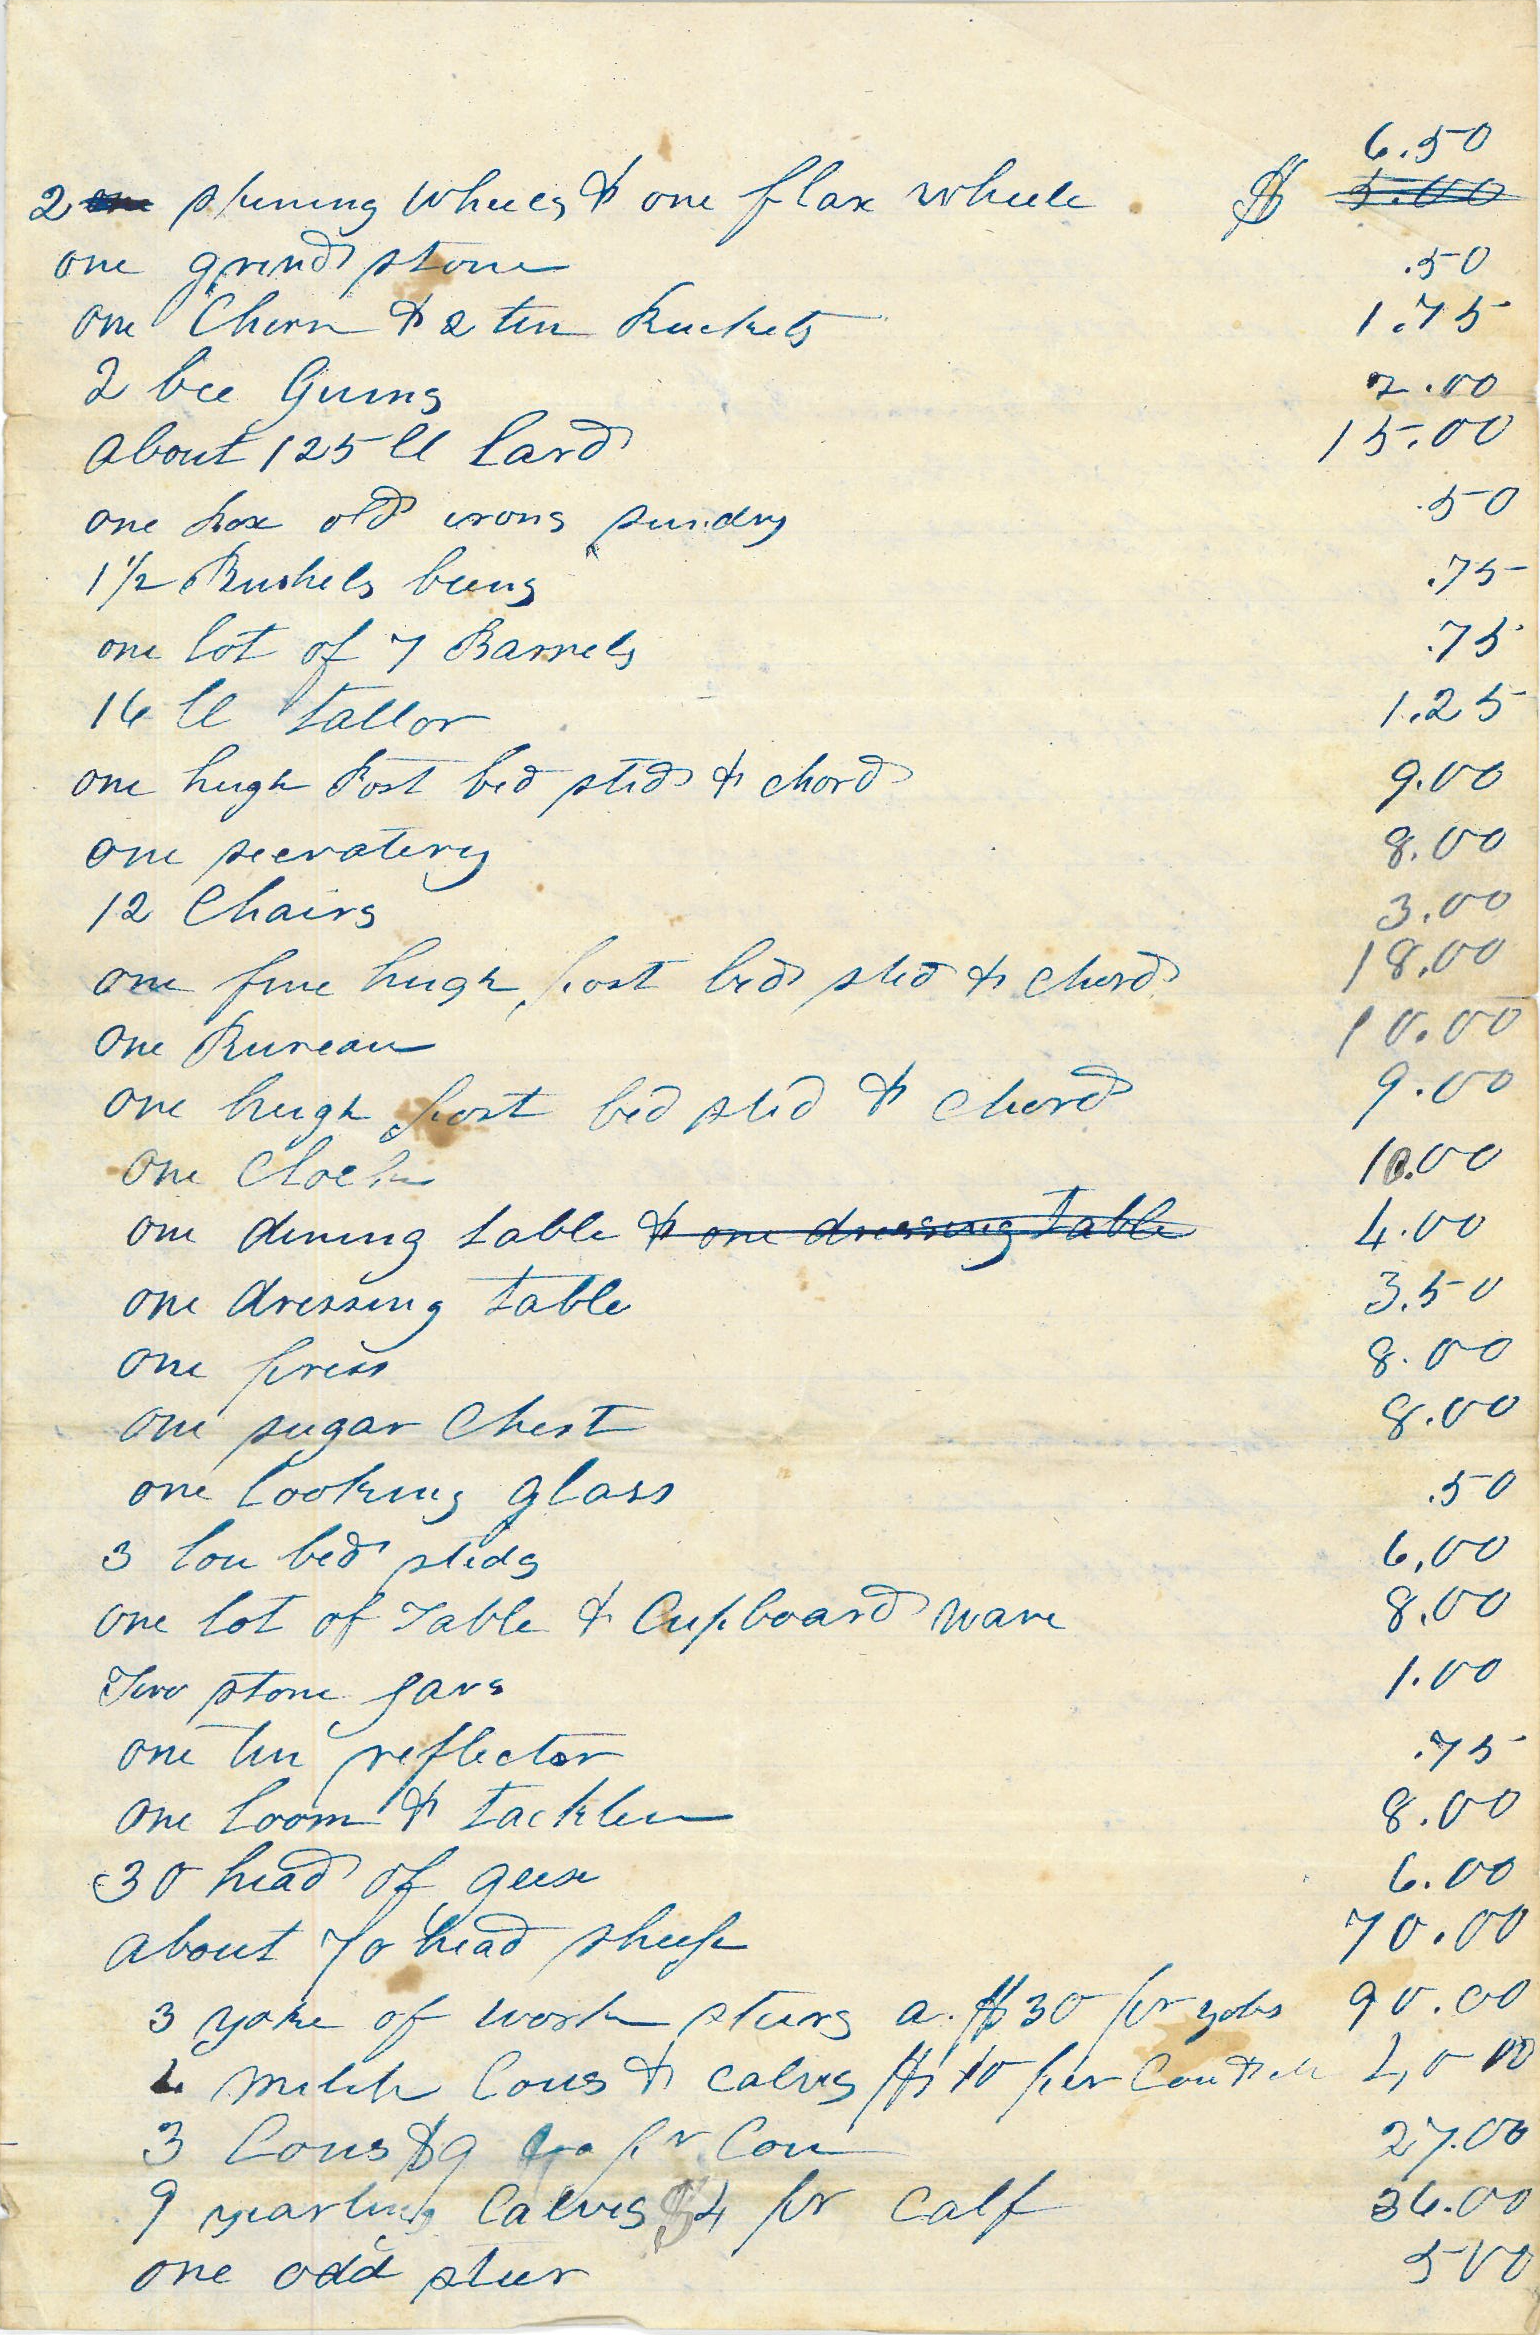 6.50
2 ~~one~~ spining wheels & one flax wheele $ ~~5.00~~
one grind stone .50
one Chirn & 2 tin Buckets 1.75
2 bee Gums 2.00
about 125 ll Lard 15.00
one box old irons sundry .50
1 1/2 Bushels beens .75
one lot of 7 Barrels .75
16 ll tallor 1.25
one high Post bed sted & chord 9.00
one secratery 8.00
12 Chairs 3.00
one fine high post bed sted & chord 18.00
one Bureau 10.00
one high post bed sted & chord 9.00
one Clock 10.00
one dining table ~~& one dressing table~~ 4.00
one dressing table 3.50
one press 8.00
one sugar Chest 8.00
one looking glass .50
3 lou bed steds 6.00
one lot of Table & Cupboard ware 8.00
Two stone Jars 1.00
one tin reflector .75
one loom & tacklin 8.00
30 head of geese 6.00
about 70 head sheep 70.00
3 yoke of work steers a. $30 pr yoke 90.00
4 milch Cous & calves $10 per Cou & 40 00
3 Cous $9 pr Cou 27.00
9 yearling Calves $4 pr calf 36.00
one odd steer 5 00